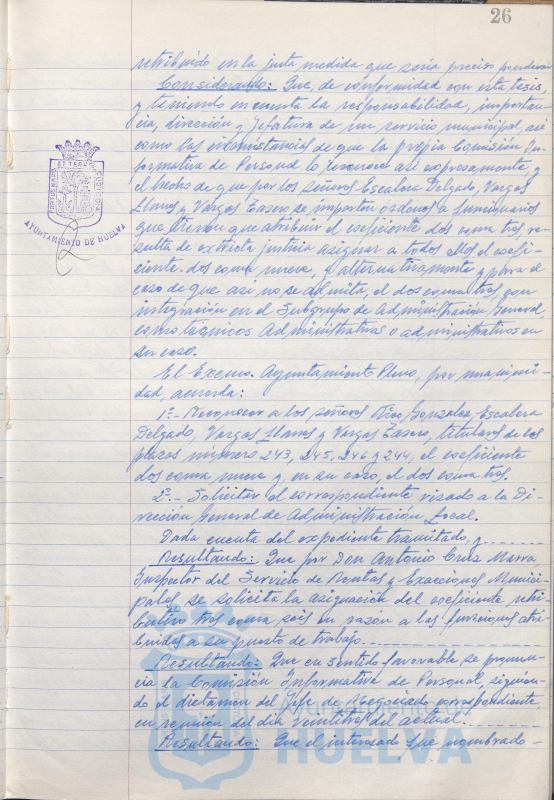 26
retribuido en la justa medida que sería preciso ponderar
Considerando: Que, de conformidad con esta tesis,
y teniendo en cuenta la responsabilidad, importan-
cia, dirección y Jefatura de un servicio municipal, así
como las circunstancias de que la propia Comisión In-
formativa de Personal lo reconoce así expresamente, y
el hecho de que por los señores Escalera Delgado, Vargas
Llanos y Vargas Easero se imparten órdenes a funcionarios
que tienen que atribuir el coeficiente dos coma tres re-
sulta de extricta justicia asignar a todos ellos el coefi-
ciente dos coma nueve, y alternativamente y para el
caso de que así no se admita, el dos coma tres con
integración en el Subgrupo de Administración General
como técnicos Administrativos o administrativos en
su caso.
El Excmo. Ayuntamiento Pleno, por unanimi-
dad, acuerda:
1º.- Reconocer a los señores González, Escalera
Delgado, Vargas Llanos y Vargas Easero, titulares de las
plazas número 243, 245, 246 y 244, el coeficiente
dos coma nueve y, en su caso, el dos coma tres.
2º.- Solicitar el correspondiente visado a la Di-
rección General de Administración Local.
Dada cuenta del expediente tramitado, y
Resultando: Que por Don Antonio Cruz Marra
Inspector del Servicio de Rentas y Exacciones Munici-
pales se solicita la asignación del coeficiente retri-
butivo tres coma seis en razón a las funciones atri-
buidas a su puesto de trabajo.
Resultando: Que en sentido favorable se pronun-
cia la Comisión Informativa de Personal, siguien-
do el dictamen del Jefe de Negociado correspondiente
en reunión del día veintitres del actual.
Resultando: Que el interesado fue nombrado -
AYUNTAMIENTO DE HUELVA
HUELVA